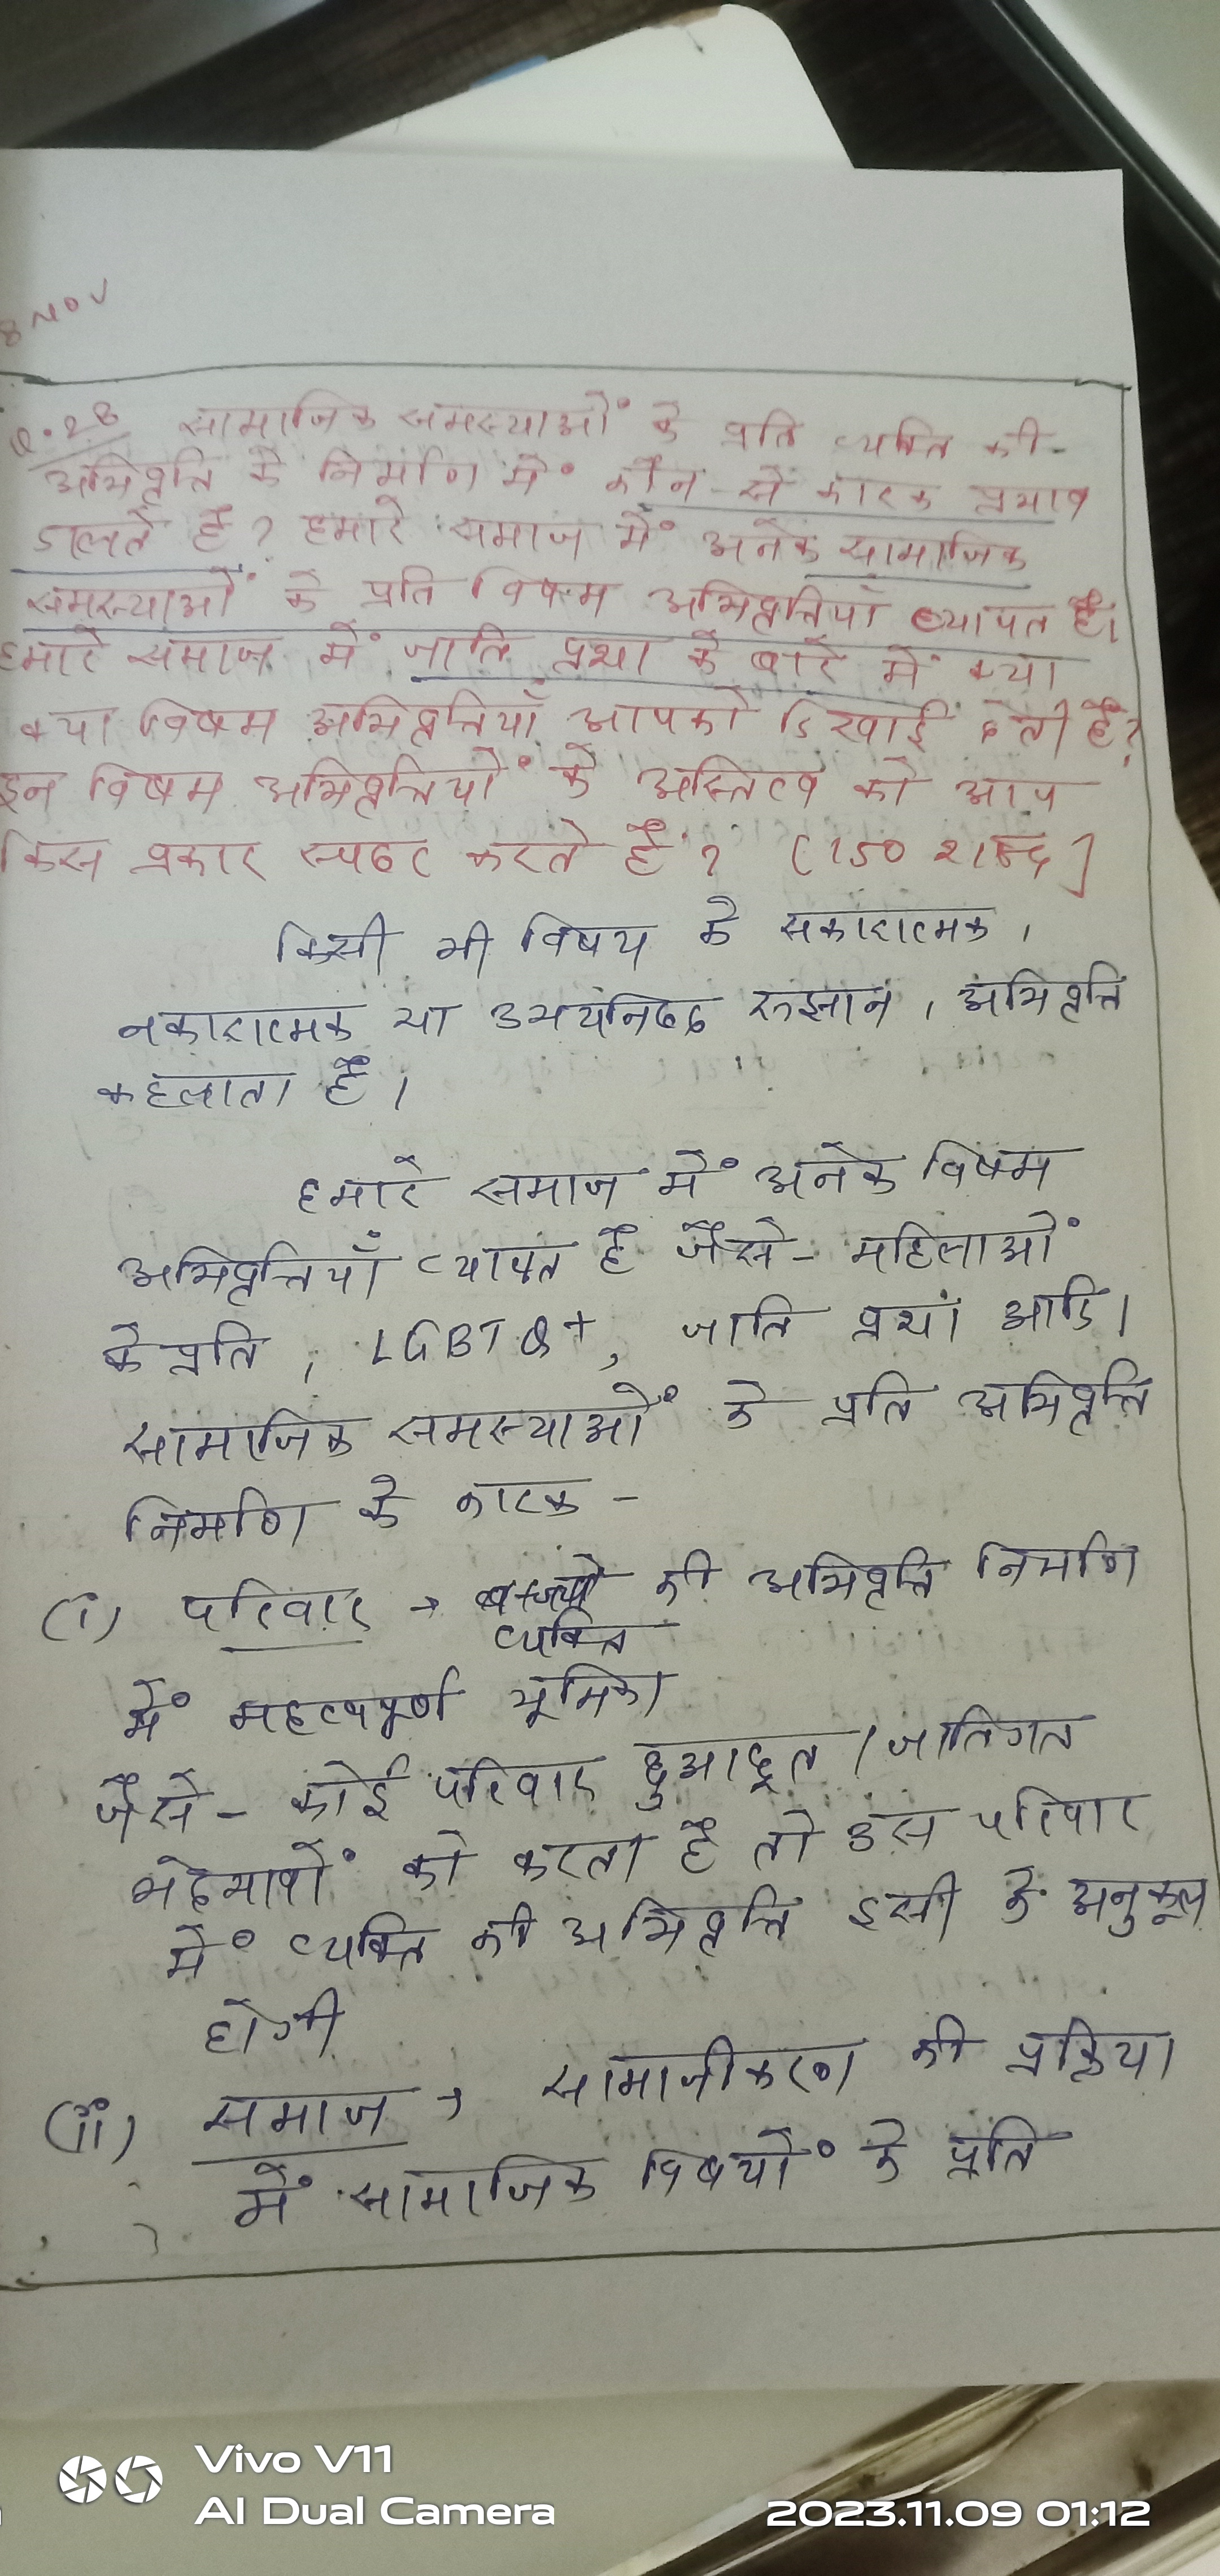 8 NOV
Q.2B सामाजिक समस्याओं के प्रति व्यक्ति की
अभिवृत्ति के निर्माण में कौन से कारक प्रभाव
डालते हैं? हमारे समाज में अनेक सामाजिक
समस्याओं के प्रति विषम अभिवृत्तियाँ व्यापत हैं।
हमारे समाज में जाति प्रथा के बारे में क्या
क्या विषम अभिवृत्तियाँ आपको दिखाई देती हैं?
इन विषम अभिवृत्तियों के अस्तित्व को आप
किस प्रकार स्पष्ट करते हैं? (150 शब्द]
किसी भी विषय के सकारात्मक,
नकारात्मक या उभयनिष्ठ रुझान, अभिवृत्ति
कहलाता है।
हमारे समाज में अनेक विषम
अभिवृत्तियाँ व्यापत है जैसे- महिलाओं
के प्रति, LGBTQ+, जाति प्रथा आदि।
सामाजिक समस्याओं के प्रति अभिवृत्ति
निर्माण के कारक -
(i) परिवार → की अभिवृत्ति निर्माण
व्यक्ति
में महत्वपूर्ण भूमिका
जैसे- कोई परिवार छुआछूत / जातिगत
भेदभावों को करता है तो उस परिवार
में व्यक्ति की अभिवृत्ति इसी के अनुकूल
होगी
(ii) समाज → सामाजीकरण की प्रक्रिया
में सामाजिक विषयों के प्रति
Vivo V11
AI Dual Camera
2023.11.09 01:12